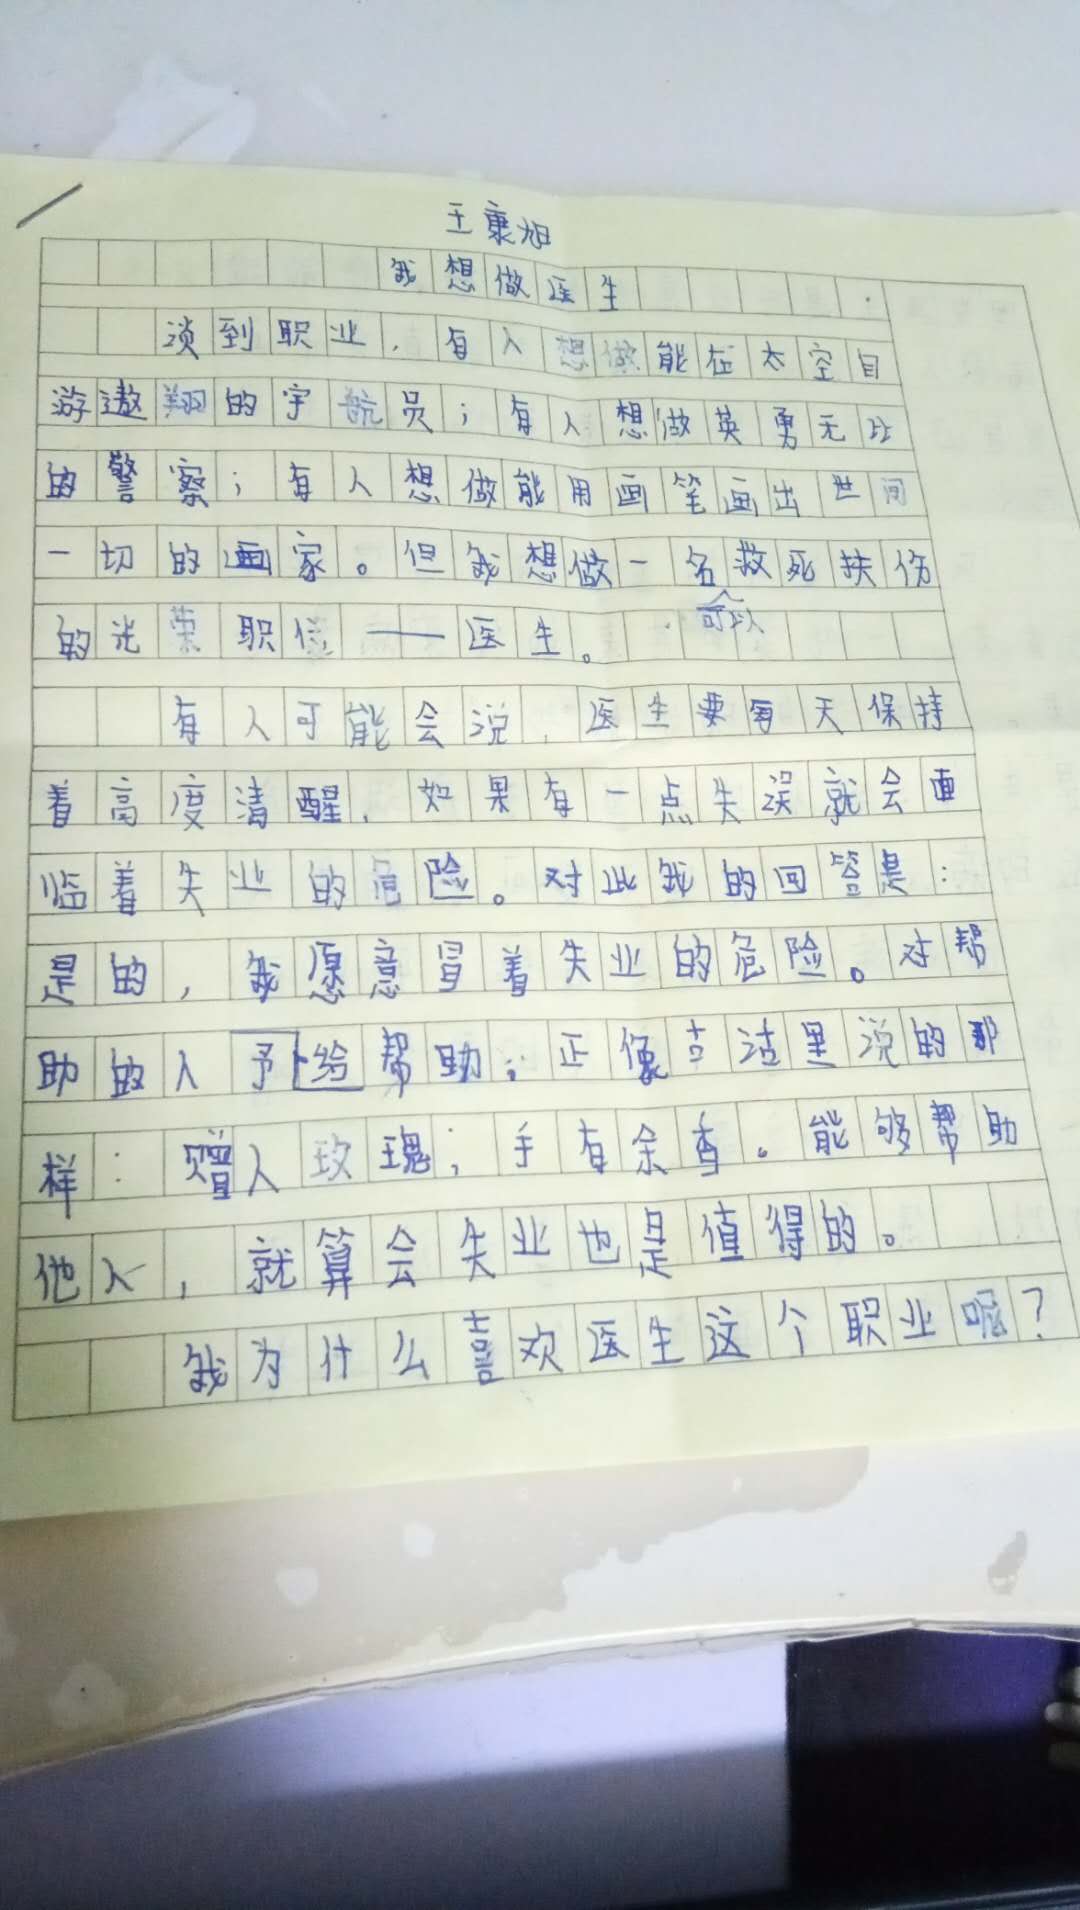 王康旭
我想做医生
谈到职业，有人想做能在太空自
游遨翔的宇航员；有人想做英勇无比
的警察；有人想做能用画笔画出世间
一切的画家。但我想做一名可以救死扶伤
的光荣职位——医生。
有人可能会说，医生要每天保持
着高度清醒，如果有一点失误就会面
临着失业的危险。对此我的回答是：
是的，我愿意冒着失业的危险。对帮
助的人予给帮助；正像古话里说的那
样：赠人玫瑰；手有余香。能够帮助
他人，就算会失业也是值得的。
我为什么喜欢医生这个职业呢？